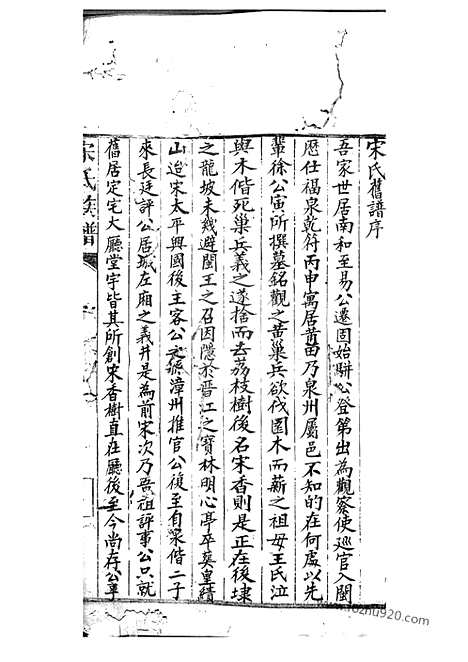 宋氏舊譜序
吾家世居南和至易公遷固始駢公登第出為觀察使巡官入閩
歷仕福泉乾符丙申寓居莆田乃泉州屬邑不知的在何處以先
輩徐公寅所撰墓銘觀之黃巢兵欲伐園木而薪之祖母王氏泣
與木偕死巢兵義之遂捨而去荔枝樹後名宋香則是正在後埭
之龍坡未幾避閩王之召因隱於晉江之寶林明心亭卒葬皇績
山迨宋太平興國後主客公之漳州推官公復至自泉偕二子
來長廷評公居城左廂之義井是為前宋次乃吾祖評事公只就
舊居定宅大廳堂宇皆其所創宋香樹直在廳後至今尚存公享
宋氏族譜
www.fozhu920.com